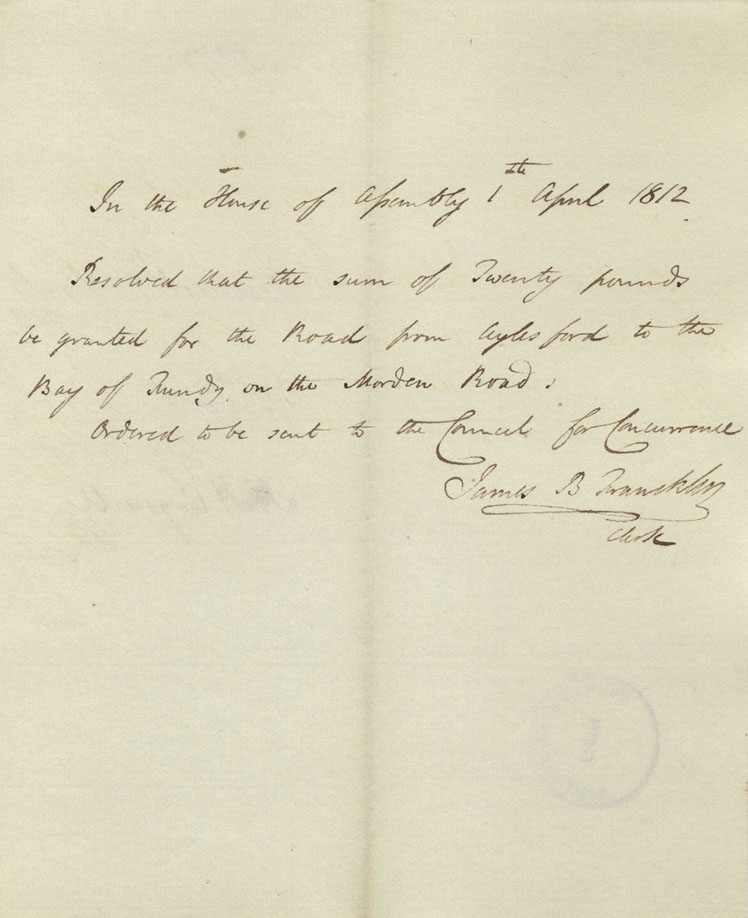 In the House of Assembly 1th April 1812
Resolved that the sum of Twenty pounds
be granted for the Road from Aylesford to the
Bay of Fundy on the Morden Road.
Ordered to be sent to the Council for Concurrence
James B Franklin
Clerk